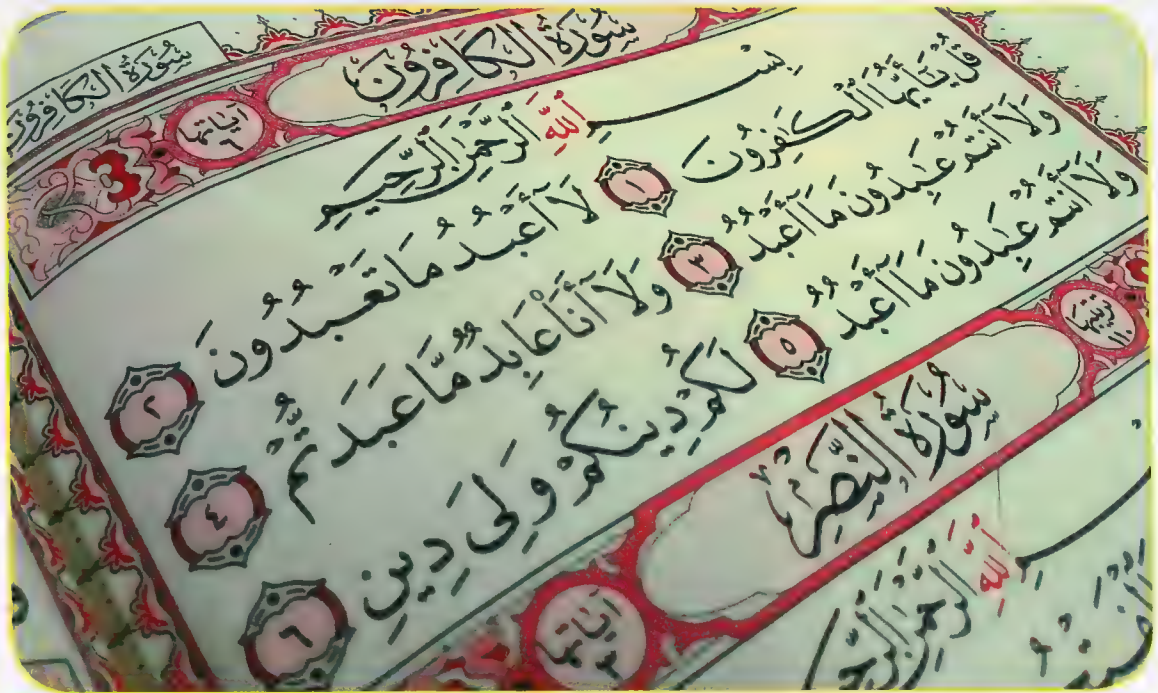 سُورَةُ الكَافِرُونَ
سُورَةُ الكَافِرُونَ
آيَاتُهَا ٦
بِسْمِ ٱللَّهِ ٱلرَّحْمَٰنِ ٱلرَّحِيمِ
قُلْ يَٰٓأَيُّهَا ٱلْكَٰفِرُونَ ١ لَآ أَعْبُدُ مَا تَعْبُدُونَ ٢
وَلَآ أَنتُمْ عَٰبِدُونَ مَآ أَعْبُدُ ٣ وَلَآ أَنَا۠ عَابِدٌ مَّا عَبَدتُّمْ ٤
وَلَآ أَنتُمْ عَٰبِدُونَ مَآ أَعْبُدُ ٥ لَكُمْ دِينُكُمْ وَلِىَ دِينِ ٦
سُورَةُ النَّصْرِ
آيَاتُهَا ٣
ٱللَّهِ ٱلرَّحْمَٰنِ